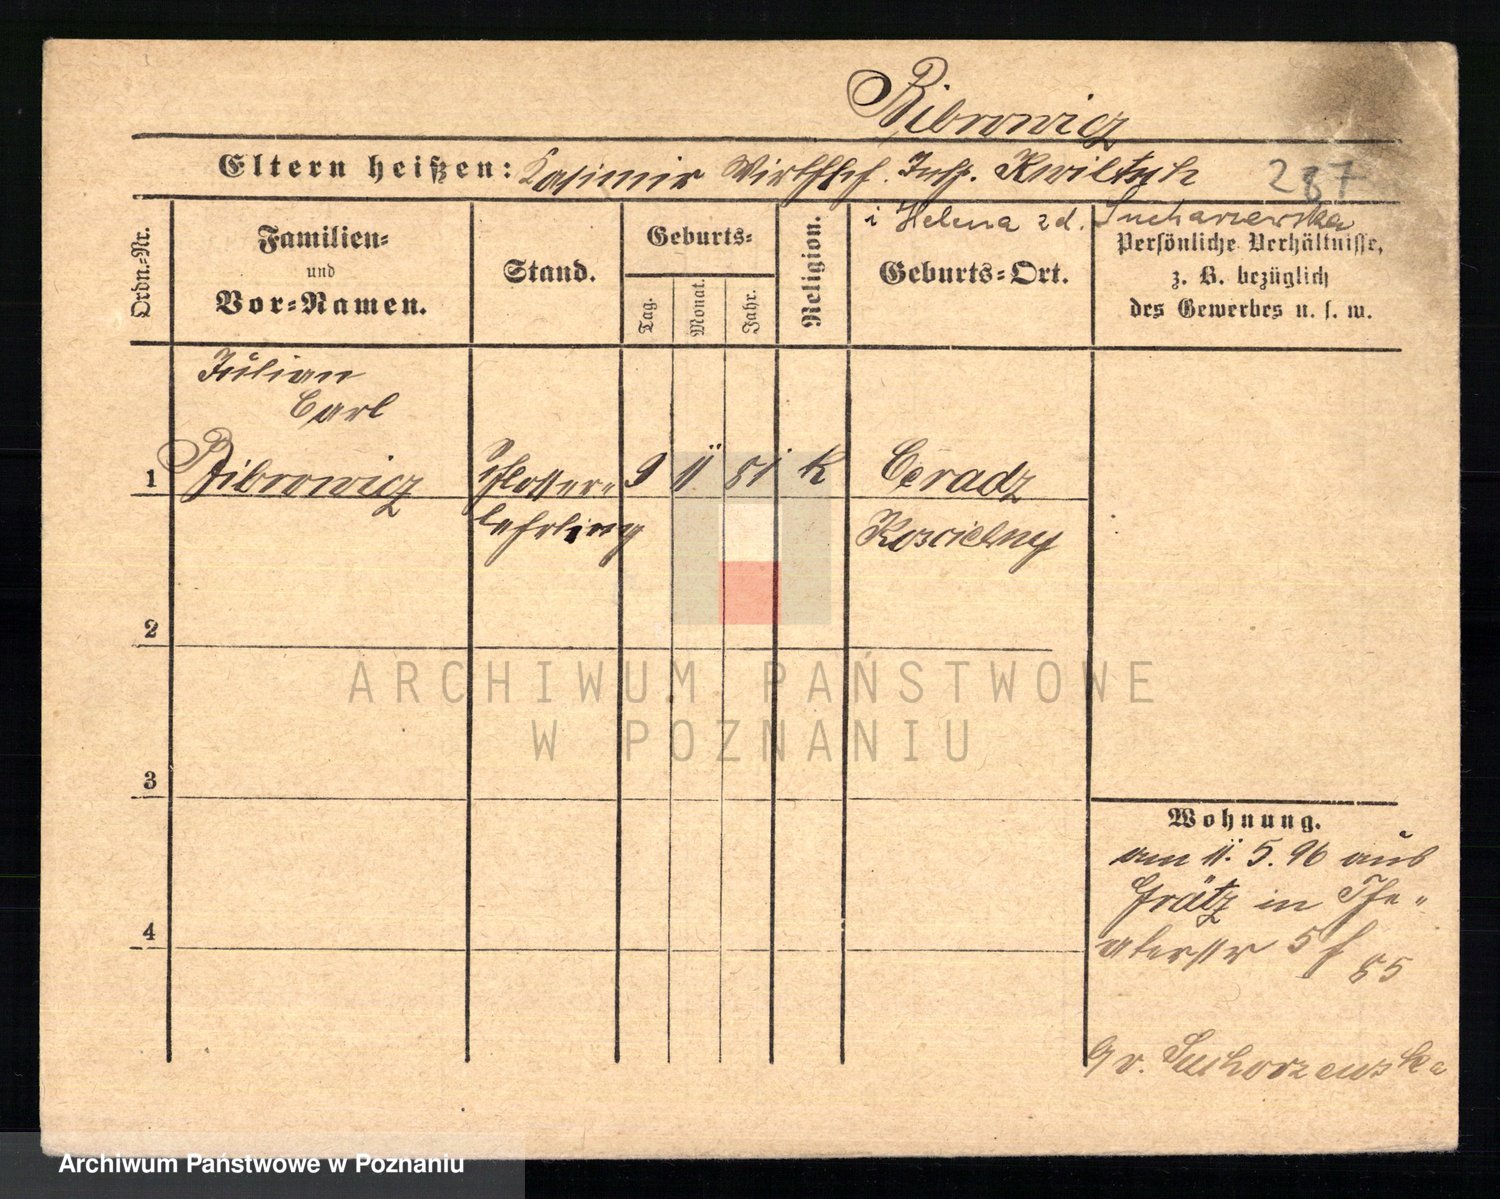 Bibrowicz
Eltern heißen: Kasimir Wirthsch. Insp. Kwiltsch
287
i Helena zd. Sucharzewska
Ordn.-Nr.
Familien-
und
Vor-Namen.
Stand.
Geburts-
Tag.
Monat.
Jahr.
Religion.
Geburts-Ort.
Persönliche Verhältnisse,
z. B. bezüglich
des Gewerbes u. s. w.
Julian
Carl
1 Bibrowicz Schlosser- 9 11 81 K Ceradz
lehrling Koscielny
2
3
4
Wohnung.
am 11. 5. 96 aus
Grätz in The-
aterstr 5 f 85
Suchorzewska
ARCHIWUM PAŃSTWOWE
W POZNANIU
Archiwum Państwowe w Poznaniu